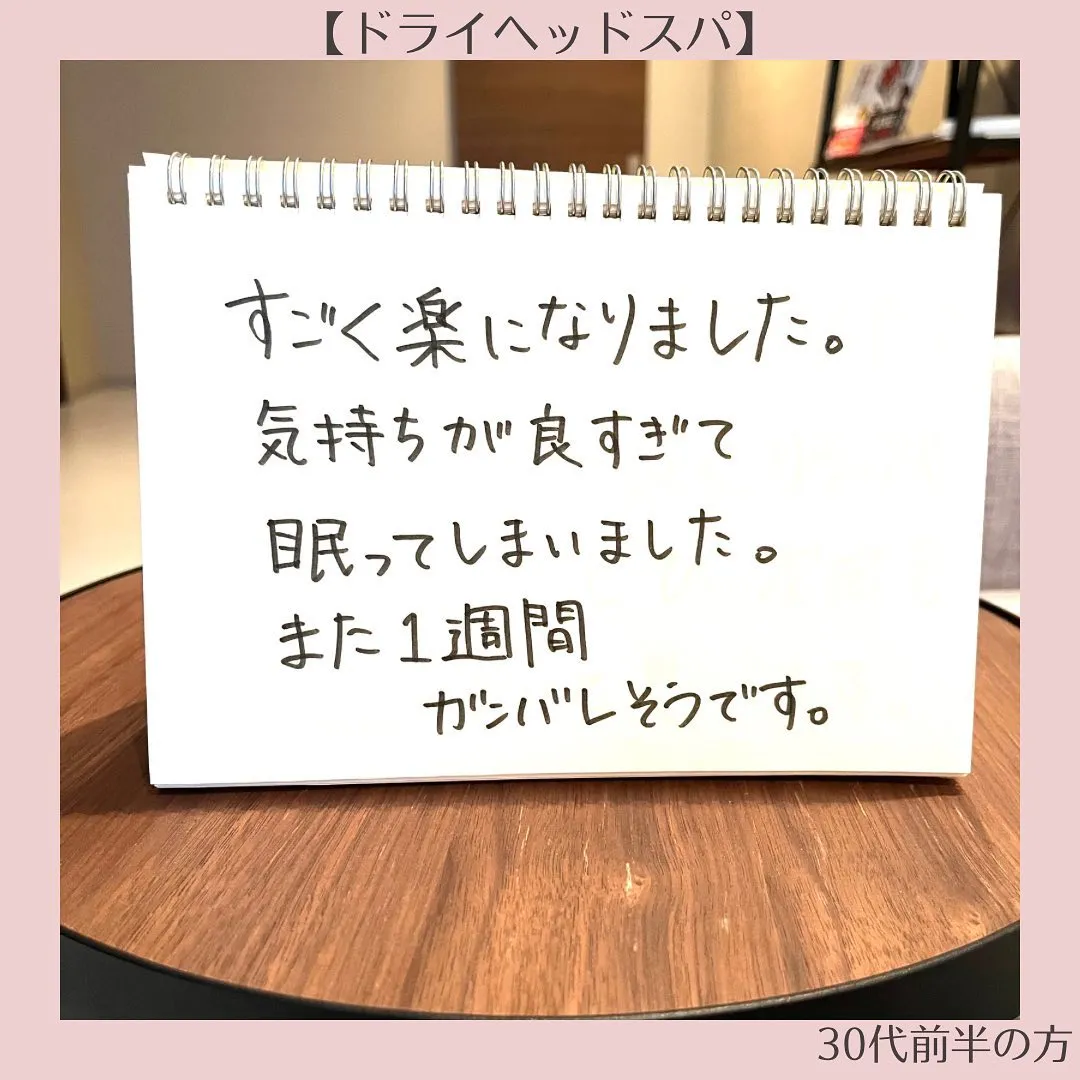 【ドライヘッドスパ】
すごく楽になりました。
気持ちが良すぎて
眠ってしまいました。
また1週間
ガンバレそうです。
30代前半の方